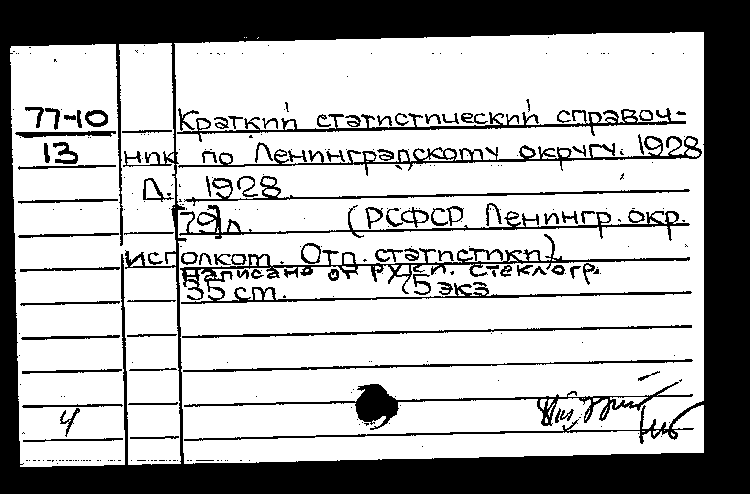 77-10 Краткий статистический справоч-
13 ник по Ленинградскому округу. 1928
Л. 1928
[79]л. (РСФСР. Ленингр. окр.
исполком. Отд. статистики).
Написано от руки. Стеклогр.
35 cm. 75 экз
4